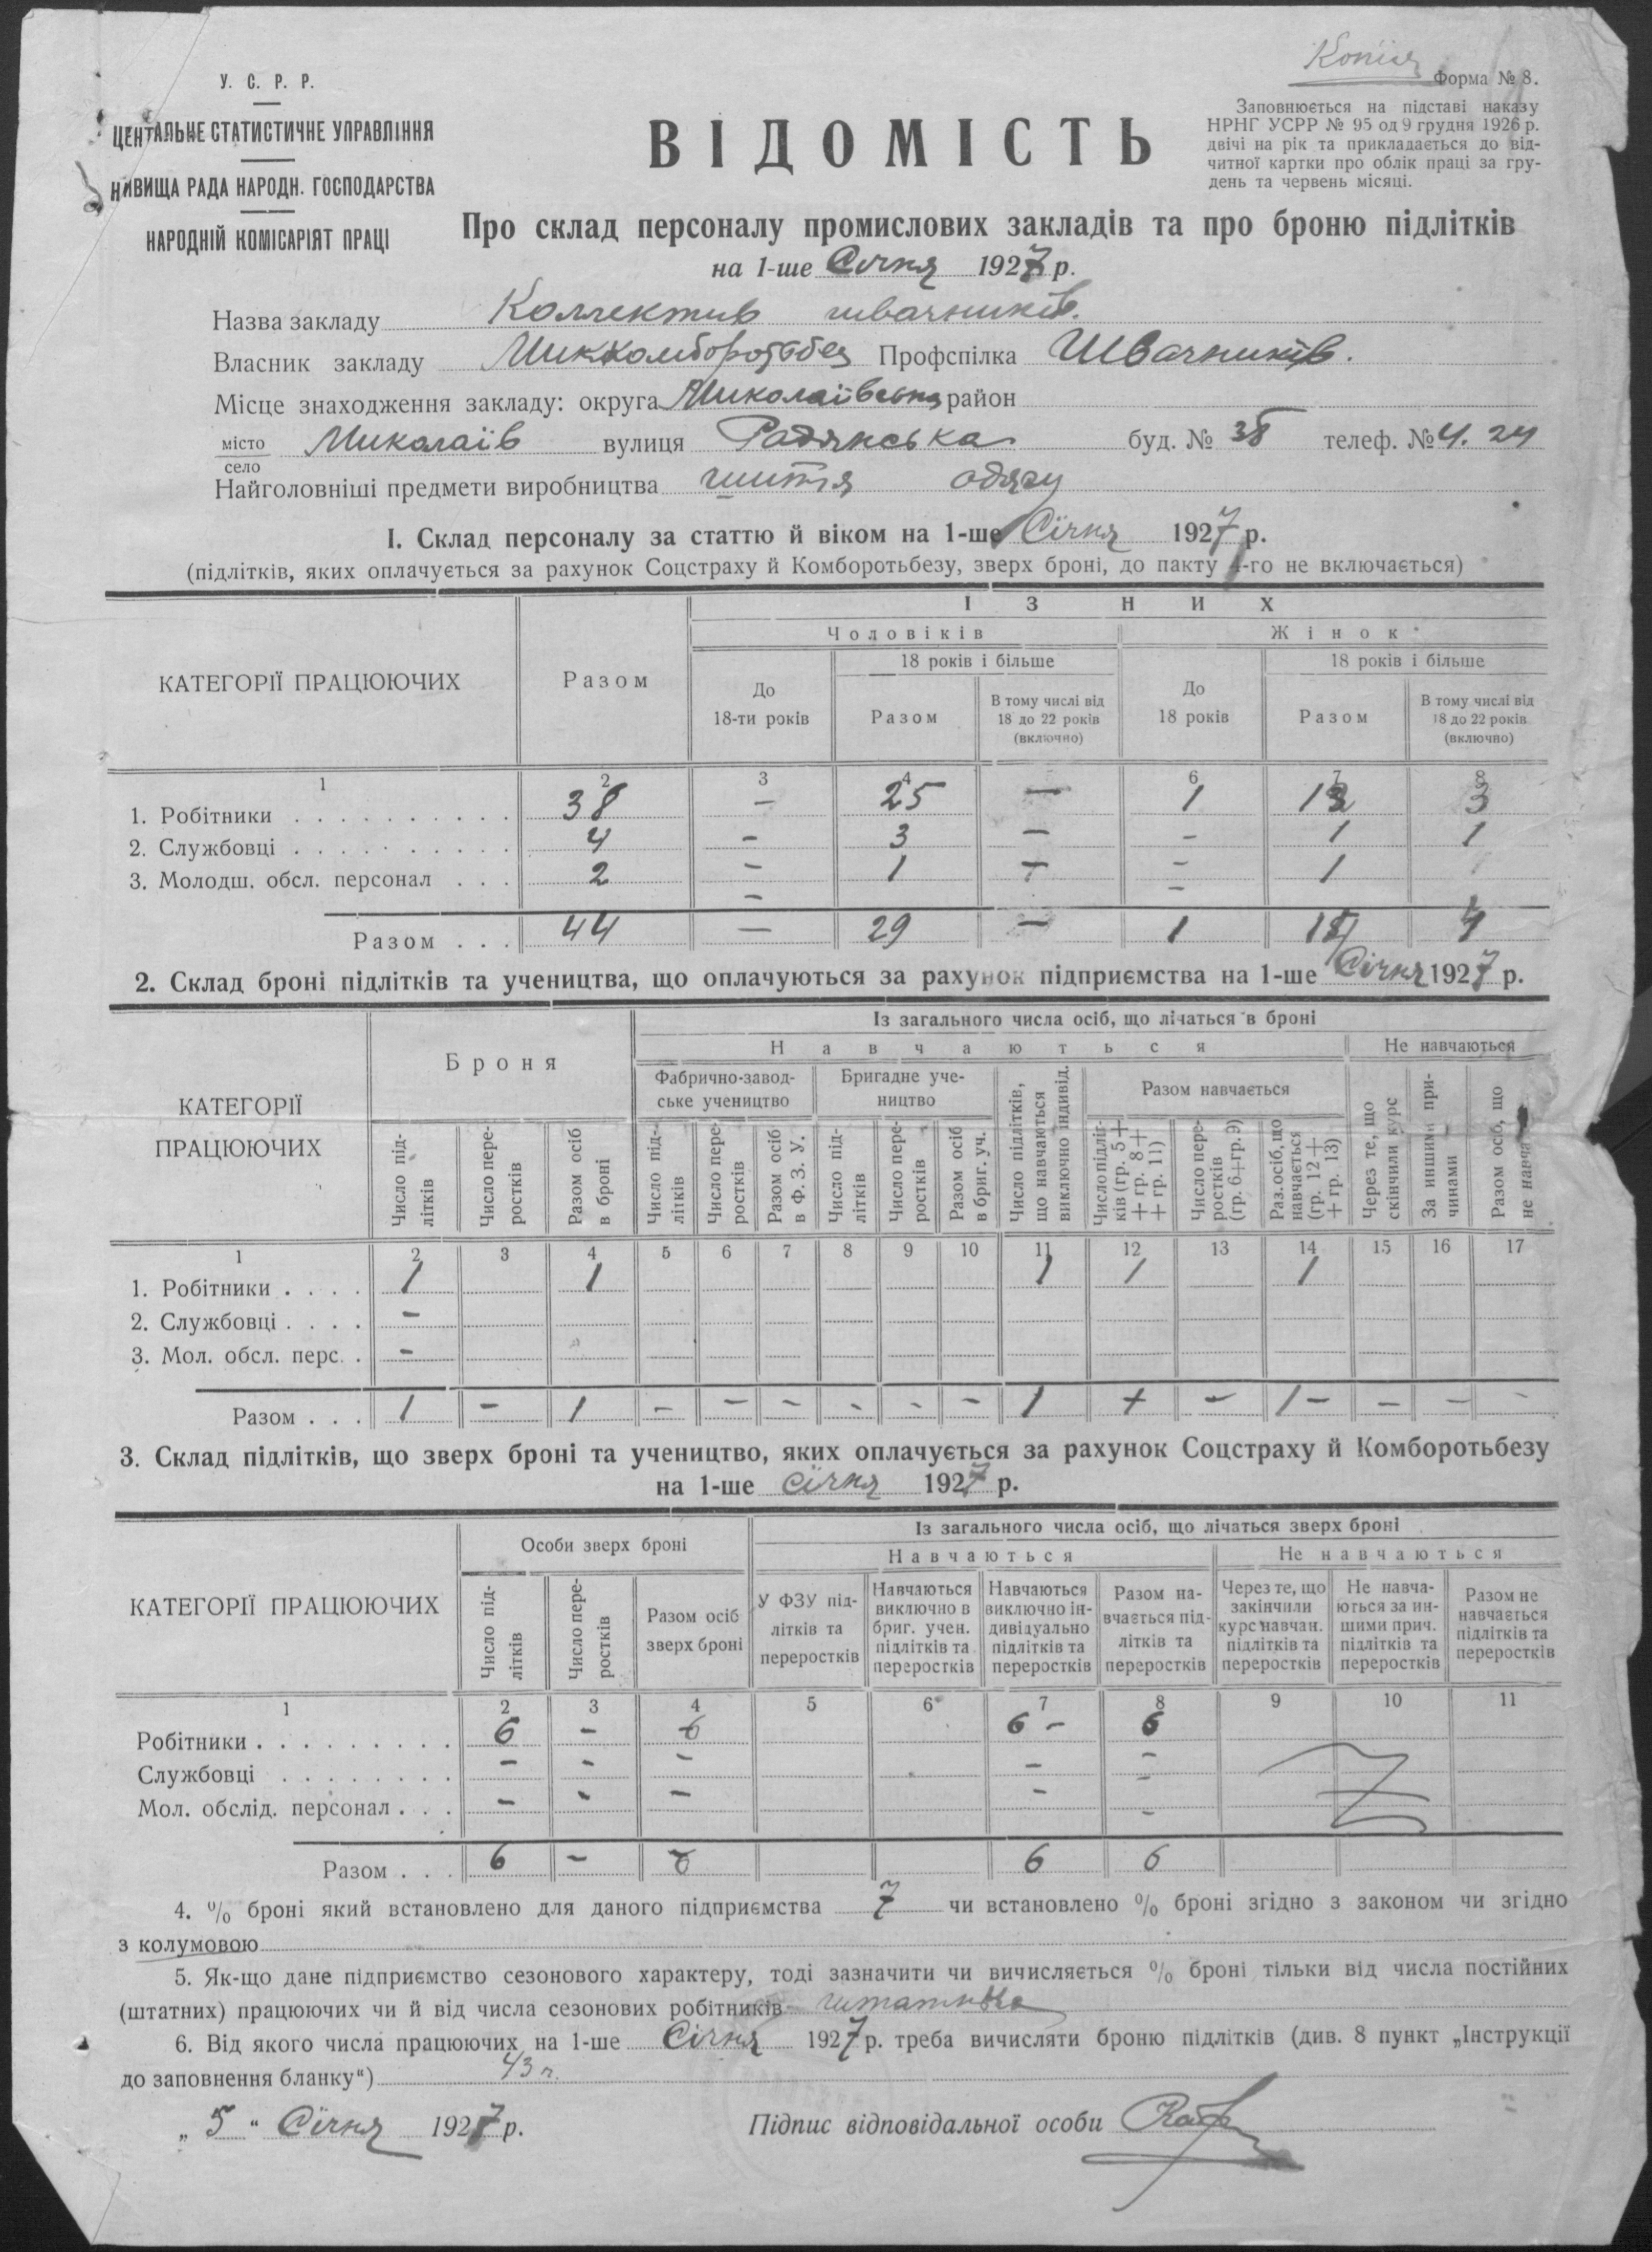 Копія
Форма № 8.
У. С. Р. Р.
ЦЕНТАЛЬНЕ СТАТИСТИЧНЕ УПРАВЛІННЯ
НИВИЩА РАДА НАРОДН. ГОСПОДАРСТВА
НАРОДНІЙ КОМІСАРІЯТ ПРАЦІ
Заповнюється на підставі наказу
НРНГ УСРР № 95 од 9 грудня 1926 р.
двічі на рік та прикладається до від-
читної картки про облік праці за гру-
день та червень місяці.
ВІДОМІСТЬ
Про склад персоналу промислових закладів та про броню підлітків
на 1-ше Січня 1927 р.
Назва закладу Коллектив швачників.
Власник закладу Миккомборотьбез Профспілка Швачників.
Місце знаходження закладу: округа Миколаївська район
місто
село Миколаїв вулиця Радянська буд. № 38 телеф. № 4. 24
Найголовніші предмети виробництва шиття одягу
I. Склад персоналу за статтю й віком на 1-ше Січня 1927 р.
(підлітків, яких оплачується за рахунок Соцстраху й Комборотьбезу, зверх броні, до пакту 4-го не включається)
КАТЕГОРІЇ ПРАЦЮЮЧИХ
Разом
ІЗ НИХ
Чоловіків Жінок
До 18-ти років
18 років і більше
Разом
В тому числі від 18 до 22 років (включно)
До 18 років
18 років і більше
Разом
В тому числі від 18 до 22 років (включно)
1 2 3 4 6 7 8
1. Робітники 38 — 25 — 1 12 3
2. Службовці 4 - 3 — - 1 1
3. Молодш. обсл. персонал 2 - 1 - - 1
Разом 44 — 29 — 1 14 4
2. Склад броні підлітків та учеництва, що оплачуються за рахунок підприємства на 1-ше Січня 1927 р.
КАТЕГОРІЇ ПРАЦЮЮЧИХ
Броня
Із загального числа осіб, що лічаться в броні
Навчаються Не навчаються
Фабрично-завод-
ське учеництво
Бригадне уче-
ництво
Разом навчається
Число під-
літків
Число пере-
ростків
Разом осіб
в броні
Число під-
літків
Число пере-
ростків
Разом осіб
в Ф. З. У.
Число під-
літків
Число пере-
ростків
Разом осіб
в бриг. уч.
Число підлітків,
що навчаються
виключно індивід.
Число підліт-
ків (гр. 5 +
+ гр. 8 +
+ гр. 11)
Число пере-
ростків
(гр. 6+гр. 9)
Раз. осіб, що
навчається
(гр. 12 +
+ гр. 13)
Через те, що
скінчили курс
За иншими при-
чинами
Разом осіб, що
не навча
1 2 3 4 5 6 7 8 9 10 11 12 13 14 15 16 17
1. Робітники 1 1 1 1 1
2. Службовці -
3. Мол. обсл. перс. -
Разом 1 - 1 - - - - - - 1 + - 1 - - - -
3. Склад підлітків, що зверх броні та учеництво, яких оплачується за рахунок Соцстраху й Комборотьбезу
на 1-ше січня 1927 р.
КАТЕГОРІЇ ПРАЦЮЮЧИХ
Особи зверх броні
Із загального числа осіб, що лічаться зверх броні
Навчаються Не навчаються
Число під-
літків
Число пере-
ростків
Разом осіб
зверх броні
У ФЗУ під-
літків та
переростків
Навчаються
виключно в
бриг. учен.
підлітків та
переростків
Навчаються
виключно ін-
дивідуально
підлітків та
переростків
Разом на-
вчається під-
літків та
переростків
Через те, що
закінчили
курс навчан.
підлітків та
переростків
Не навча-
ються за ин-
шими прич.
підлітків та
переростків
Разом не
навчається
підлітків та
переростків
1 2 3 4 5 6 7 8 9 10 11
Робітники 6 - 6 6 - 6
Службовці - - - - -
Мол. обслід. персонал - - - - -
Разом 6 - 6 6 6
4. % броні який встановлено для даного підприємства 7 чи встановлено % броні згідно з законом чи згідно
з колумовою
5. Як-що дане підприємство сезонового характеру, тоді зазначити чи вичисляється % броні тільки від числа постійних
(штатних) працюючих чи й від числа сезонових робітників
6. Від якого числа працюючих на 1-ше Січня 1927 р. треба вичисляти броню підлітків (див. 8 пункт „Інструкції
до заповнення бланку“) 43 п.
„ 5 “ Січня 1927 р. Підпис відповідальної особи